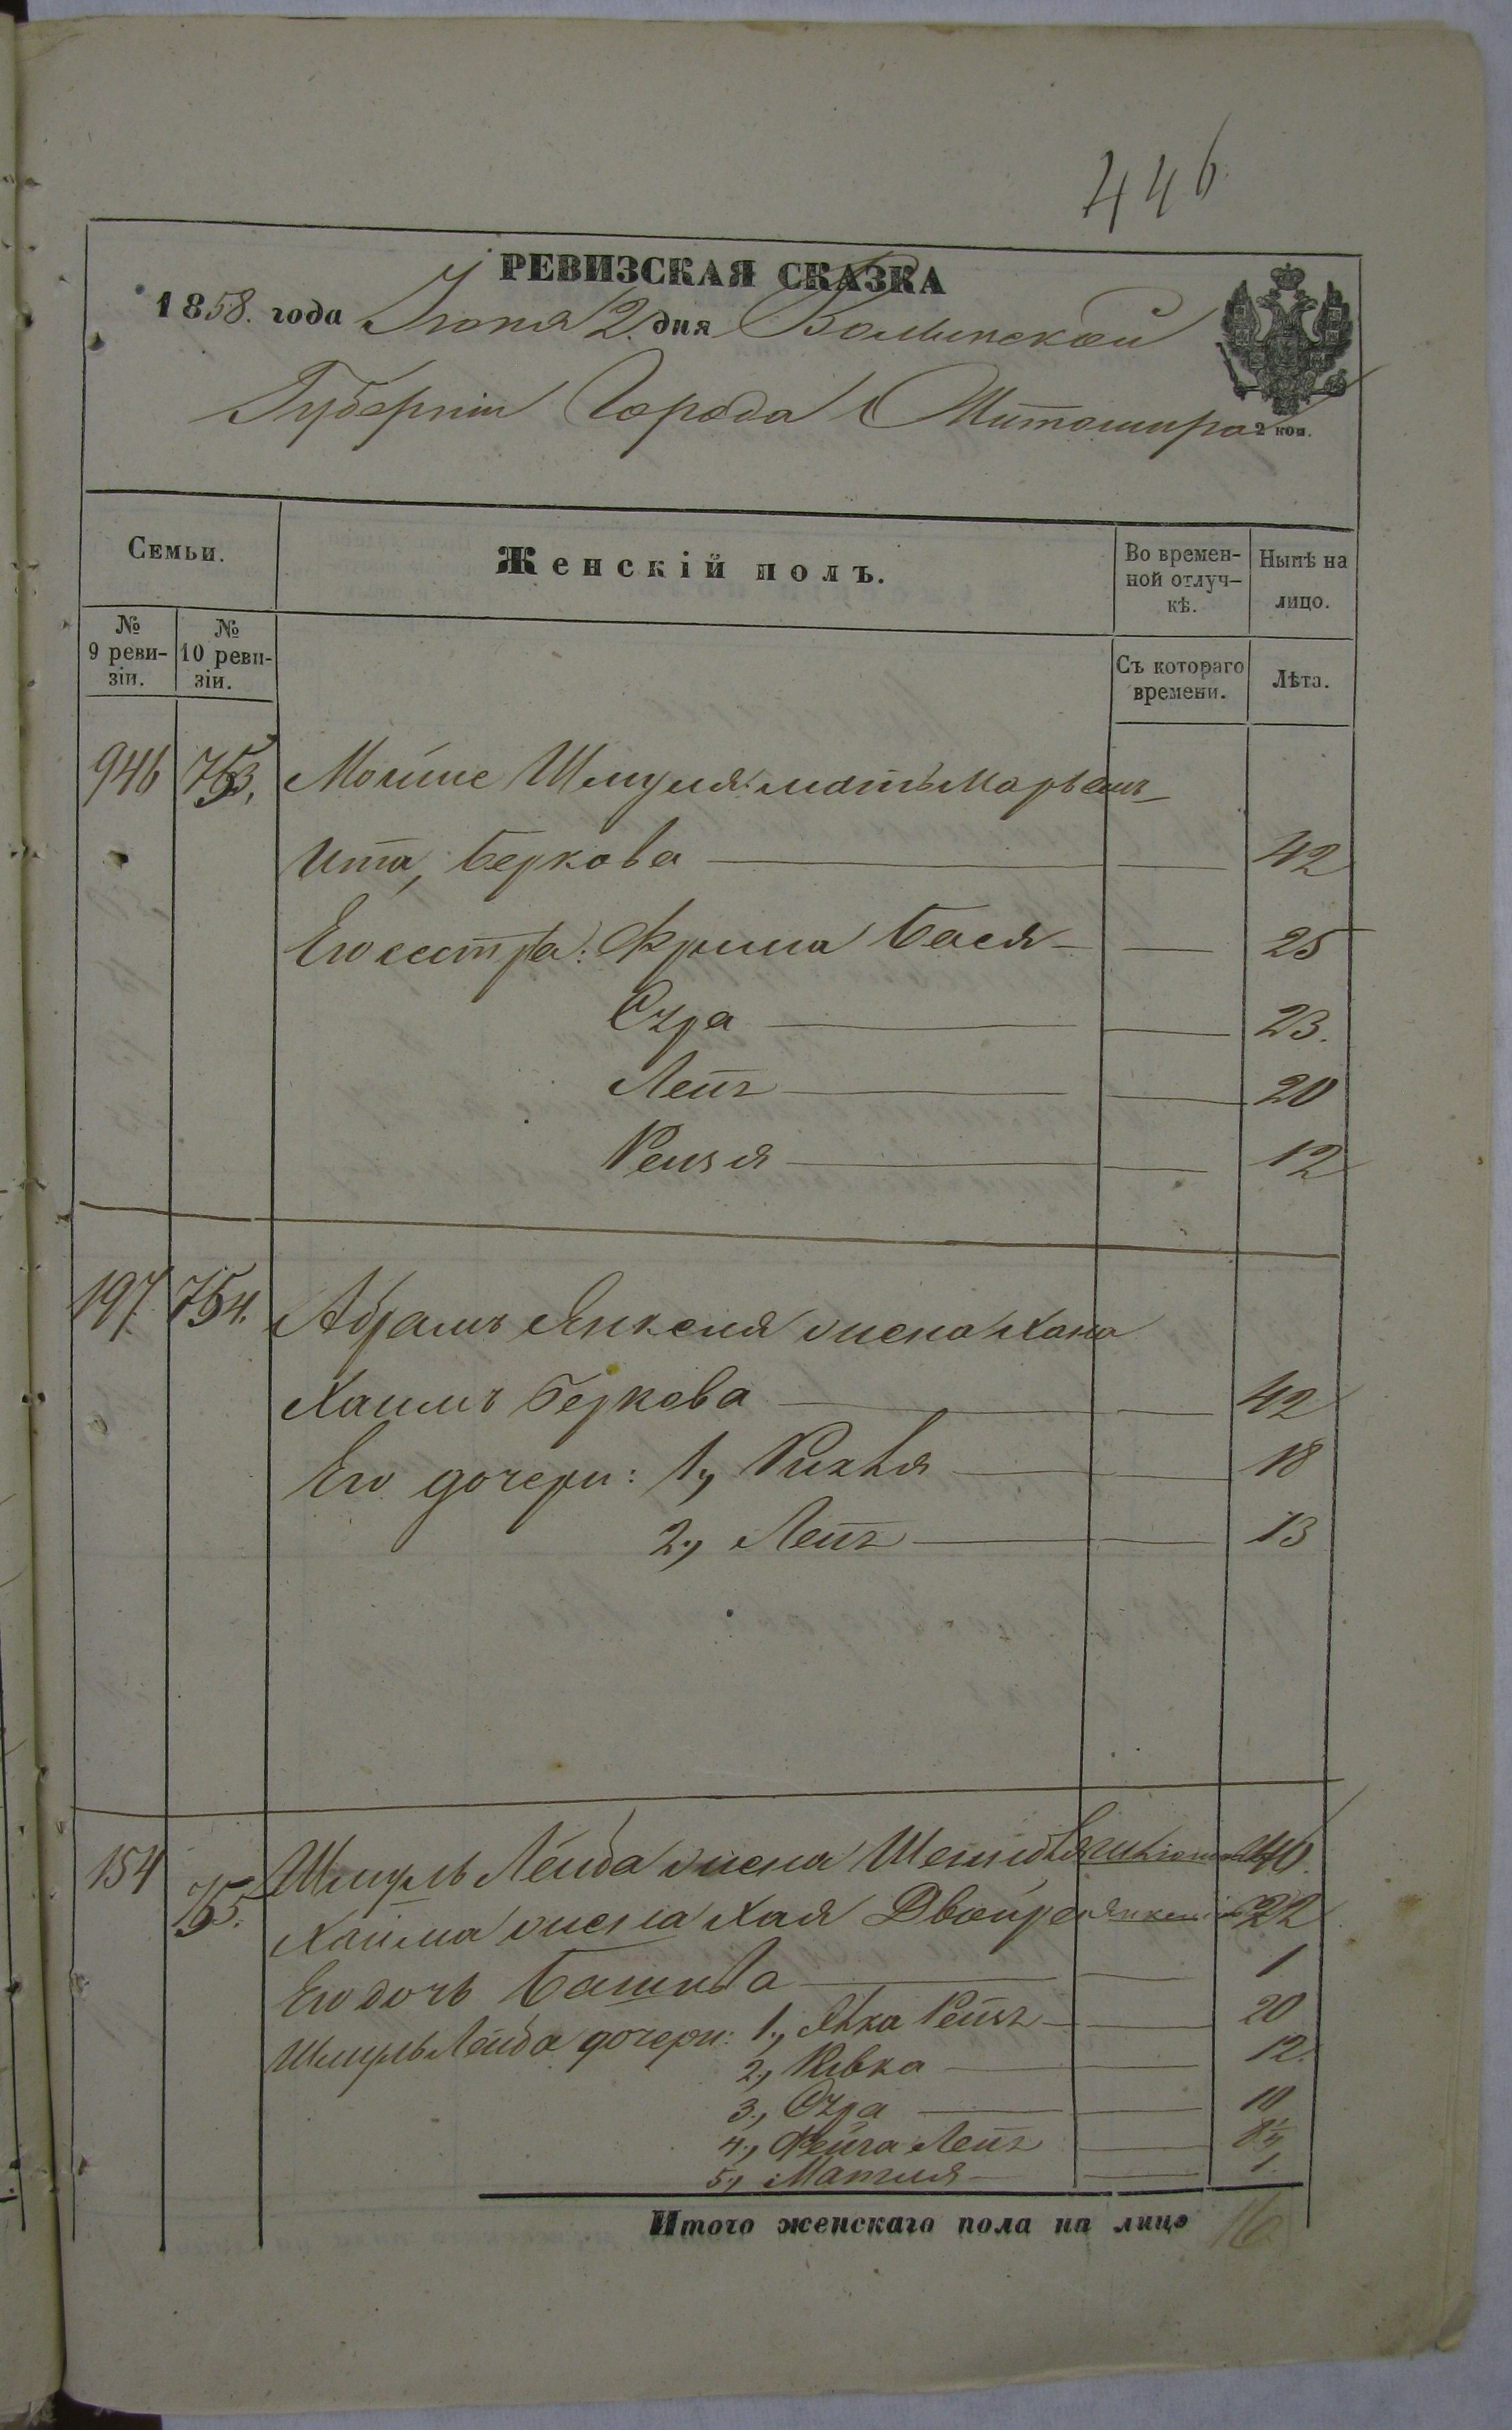 446
РЕВИЗСКАЯ СКАЗКА
1858. года Іюня 2. дня Волынской
Губерніи Города Житомира
2 коп.
Семьи.
Женскій полъ.
Во времен-
ной отлуч-
кѣ.
Нынѣ на
лицо.
№
9 реви-
зіи.
№
10 реви-
зіи.
Съ котораго
времени.
Лѣта.
946 753. Мошше Шмуля: мать Марьемъ
Ита, Беркова 42
Его сестра: Фрима Бася 25
Сура 23.
Лея 20
Рейзя 12
197. 754. Абрамъ Янкеля жена Хана
Хаимъ Беркова 42
Его дочери: 1, Рихля 18
2, Лея 13
154 755. Шмуль Лейба жена 40.
Хаима жена Хая Двойра 22
Его дочь Башива 1
Шмуль Лейба дочери: 1, 20
2, Ривка 12.
3, Сура 10
4, Фейга Лея 8½
5, Матля 1.
Итого женскаго пола на лицо 16